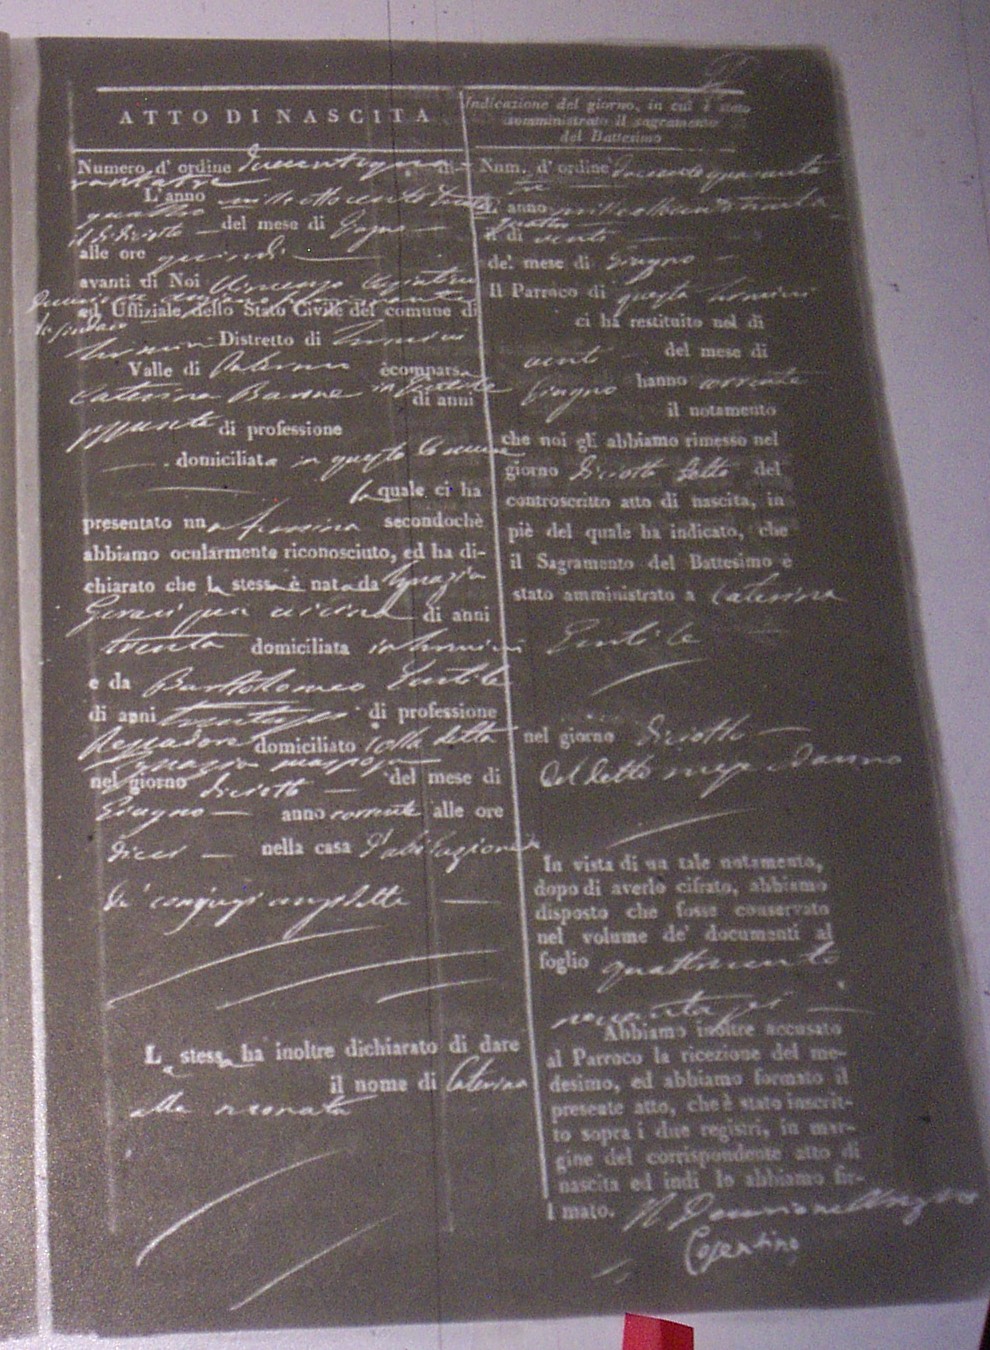 ATTO DI NASCITA
Numero d' ordine
L'anno mille ottocento trenta
quattro
il dì diciotto del mese di Giugno
alle ore quindici
avanti di Noi Vincenzo Cosentino
ed Uffiziale dello Stato Civile del comune di
Distretto di
Valle di Palermo è comparsa
Caterina Barone in Gentile di anni
di professione
domiciliata in questo Comune
la quale ci ha
presentato una femina secondochè
abbiamo ocularmente riconosciuto, ed ha di-
chiarato che la stessa è nata da Ignazia
Geraci di anni
trenta domiciliata in
e da Bartolomeo Gentile
di anni di professione
domiciliato colla detta
Ignazia
nel giorno diciotto del mese di
Giugno anno corrente alle ore
dieci nella casa d'abitazione
de' conjugi anzidetti
La stessa ha inoltre dichiarato di dare
il nome di Caterina
alla neonata
Indicazione del giorno, in cui è stato
somministrato il sagramento
del Battesimo
Num. d' ordine duecento quaranta
tre
L' anno mille ottocento trenta
quattro
il dì venti
de' mese di Giugno
Il Parroco di questa
ci ha restituito nel dì
venti del mese di
Giugno hanno corrente
il notamento
che noi gli abbiamo rimesso nel
giorno diciotto detto del
controscritto atto di nascita, in
piè del quale ha indicato, che
il Sagramento del Battesimo è
stato amministrato a Caterina
Gentile
nel giorno diciotto
del detto mese ed anno
In vista di un tale notamento,
dopo di averlo cifrato, abbiamo
disposto che fosse conservato
nel volume de' documenti al
foglio quattrocento
Abbiamo inoltre accusato
al Parroco la ricezione del me-
desimo, ed abbiamo formato il
presente atto, che è stato inscrit-
to sopra i due registri, in mar-
gine del corrispondente atto di
nascita ed indi lo abbiamo fir-
mato.
Cosentino